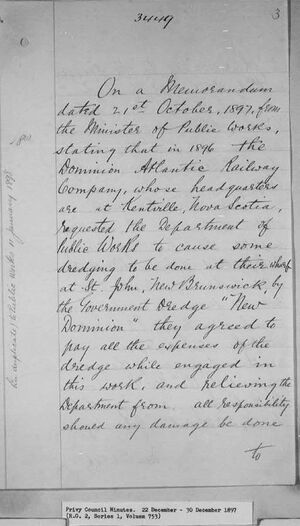 3449
3
On a Memorandum
dated 21st October, 1897, from
the Minister of Public Works,
stating that in 1896 the
Dominion Atlantic Railway
Company, whose headquarters
are at Kentville, Nova Scotia,
requested the Department of
Public Works to cause some
dredging to be done at their wharf
at St John, New Brunswick, by
the Government Dredge "New
Dominion" they agreed to
pay all the expenses of the
dredge while engaged in
this work, and relieving the
Department from all responsibility
should any damage be done
to
Public Works 11 January 1898
Privy Council Minutes. 22 December - 30 December 1897
(R.G. 2, Series 1, Volume 753)